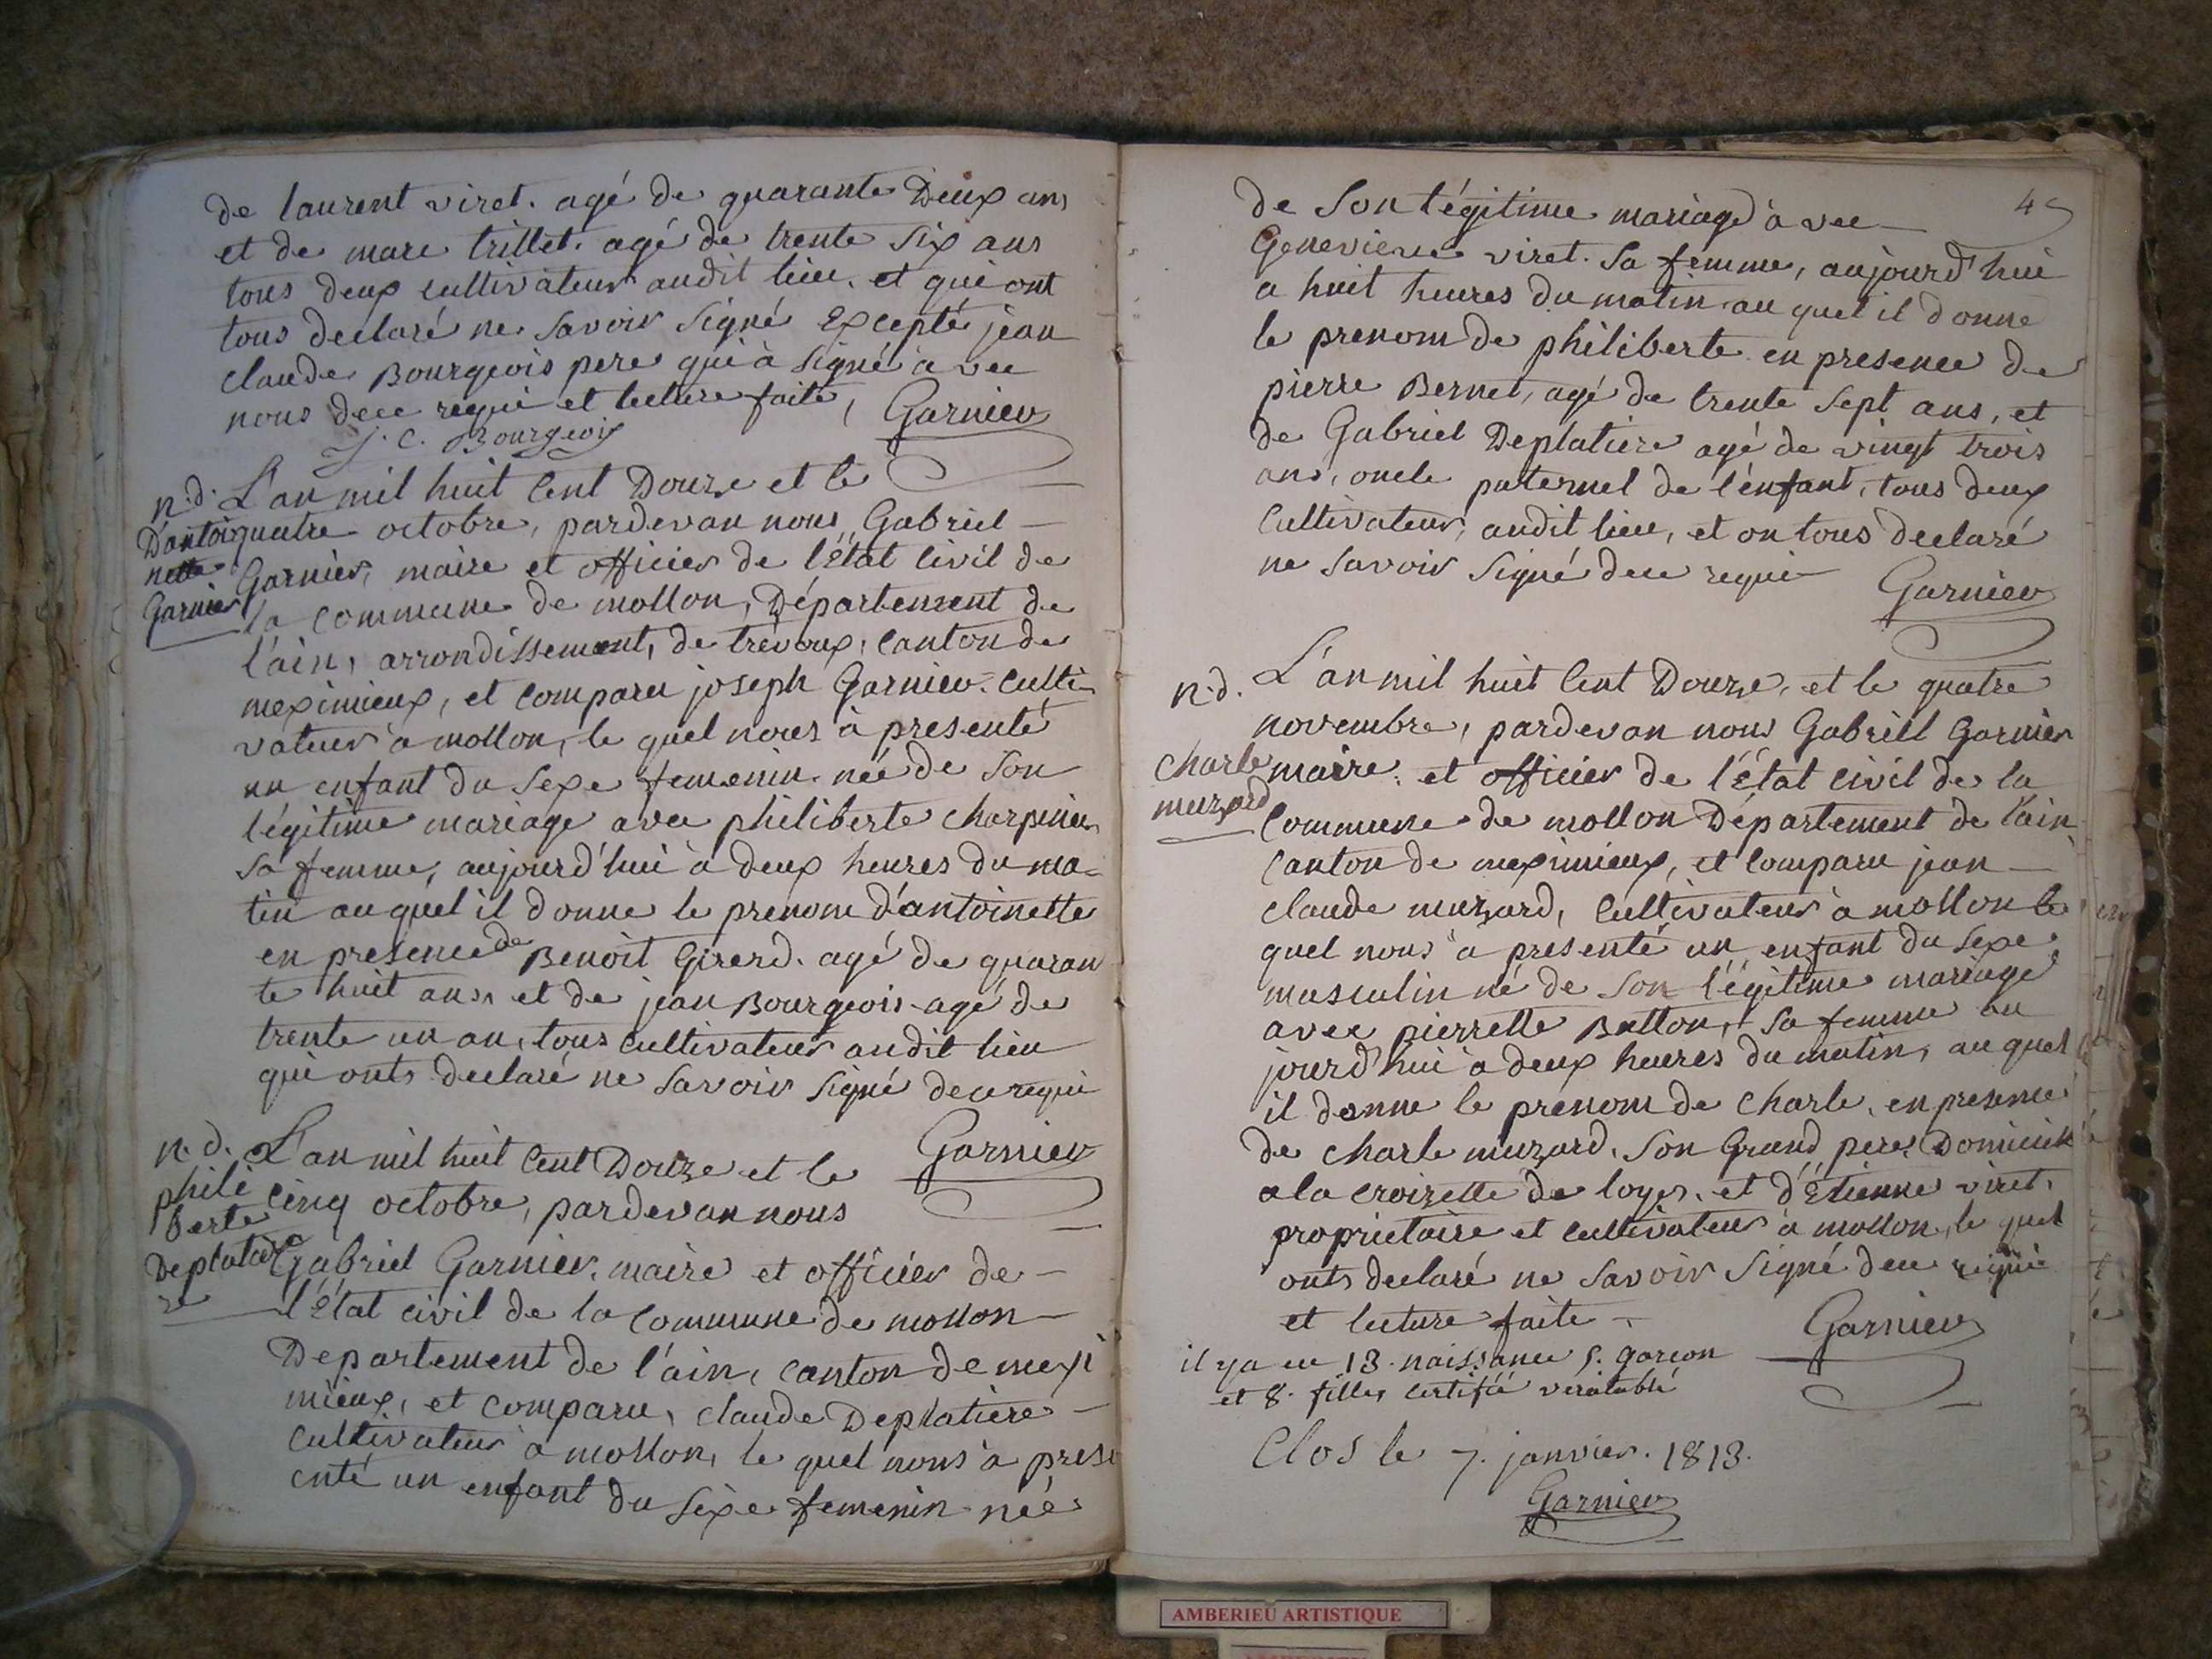 de laurent viret. agé de quarante Deux ans
et de marc trillet. agé de trente Six ans
tous deux cultivateur audit lieu. et qui ont
tous declaré ne Savoir Signé Excepté jean
claude Bourgeois pere qui à Signé à vec
nous dece requi et lecture faite, Garnier
J. C. Bourgeois
n.d. L'an mil huit Cent Douze et le
D'antoi quatre octobre, pardevan nous Gabriel
nette Garnier, maire et officier de l'État Civil de
Garnier la commune de mollon, Département de
l'ain, arrondissement, de trévoux, Canton de
meximieux, et comparu joseph Garnier. Culti-
vateur à mollon, le quel nous à presenté
un enfant du Sexe femenin née de Son
légitime mariage avec philiberte charpinier
Sa femme, aujourd'hui à deux heures du ma=
tin au quel il donne le prenom d'antoinette
en presence de Benoit Girerd. agé de quaran
te huit ans et de jean Bourgeois agé de
trente un an, tous Cultivateur audit lieu
qui onts declaré ne Savoir Signé dece requi
Garnier
n.d. L'an mil huit Cent Douze et le
phili cinq octobre, pardevan nous
berte
Deplatiè Gabriel Garnier. maire et officier de
re l'État civil de la Commune de mollon
Departement de l'ain, canton de mexi
mieux, et comparu, claude Deplatiere
Cultivateur à mollon, le quel nous à prese
enté un enfant du Sexe femenin née
4
de Son légitime mariage à vec
Genevieve viret. Sa femme, aujourd'hui
a huit heures du matin au quel il donne
le prenom de philiberte en presence de
pierre Bernet, agé de trente Sept ans, et
de Gabriel Deplatiere agé de vingt trois
ans, oncle paternel de l'enfant, tous deux
Cultivateur, audit lieu, et on tous declaré
ne Savoir Signé dece requi
Garnier
n.d. L'an mil huit Cent Douze, et le quatre
novembre, pardevan nous Gabriel Garnier
Charle maire, et officier de l'État civil de la
muzard Commune de mollon Département de l'ain
Canton de meximieux, et Comparu jean
claude muzard, Cultivateur à mollon le
quel nous à presenté un enfant du Sexe
masculin né de Son légitime mariage
avec pierrette Batton, Sa femme au
jourd'hui à deux heures du matin, au quel
il donne le prenom de Charle, en presence
de charle muzard. Son Grand pere, Domicilié
a la croizette de loyes. et d'Étienne viret,
proprietaire et cultivateur à mollon, le quel
onts declaré ne Savoir Signé dece requi
et lecture faite
Garnier
il y a eu 13. naissance 5. garcon
et 8. filles certifié véritable
Clos le 7. janvier. 1813.
Garnier
AMBERIEU ARTISTIQUE